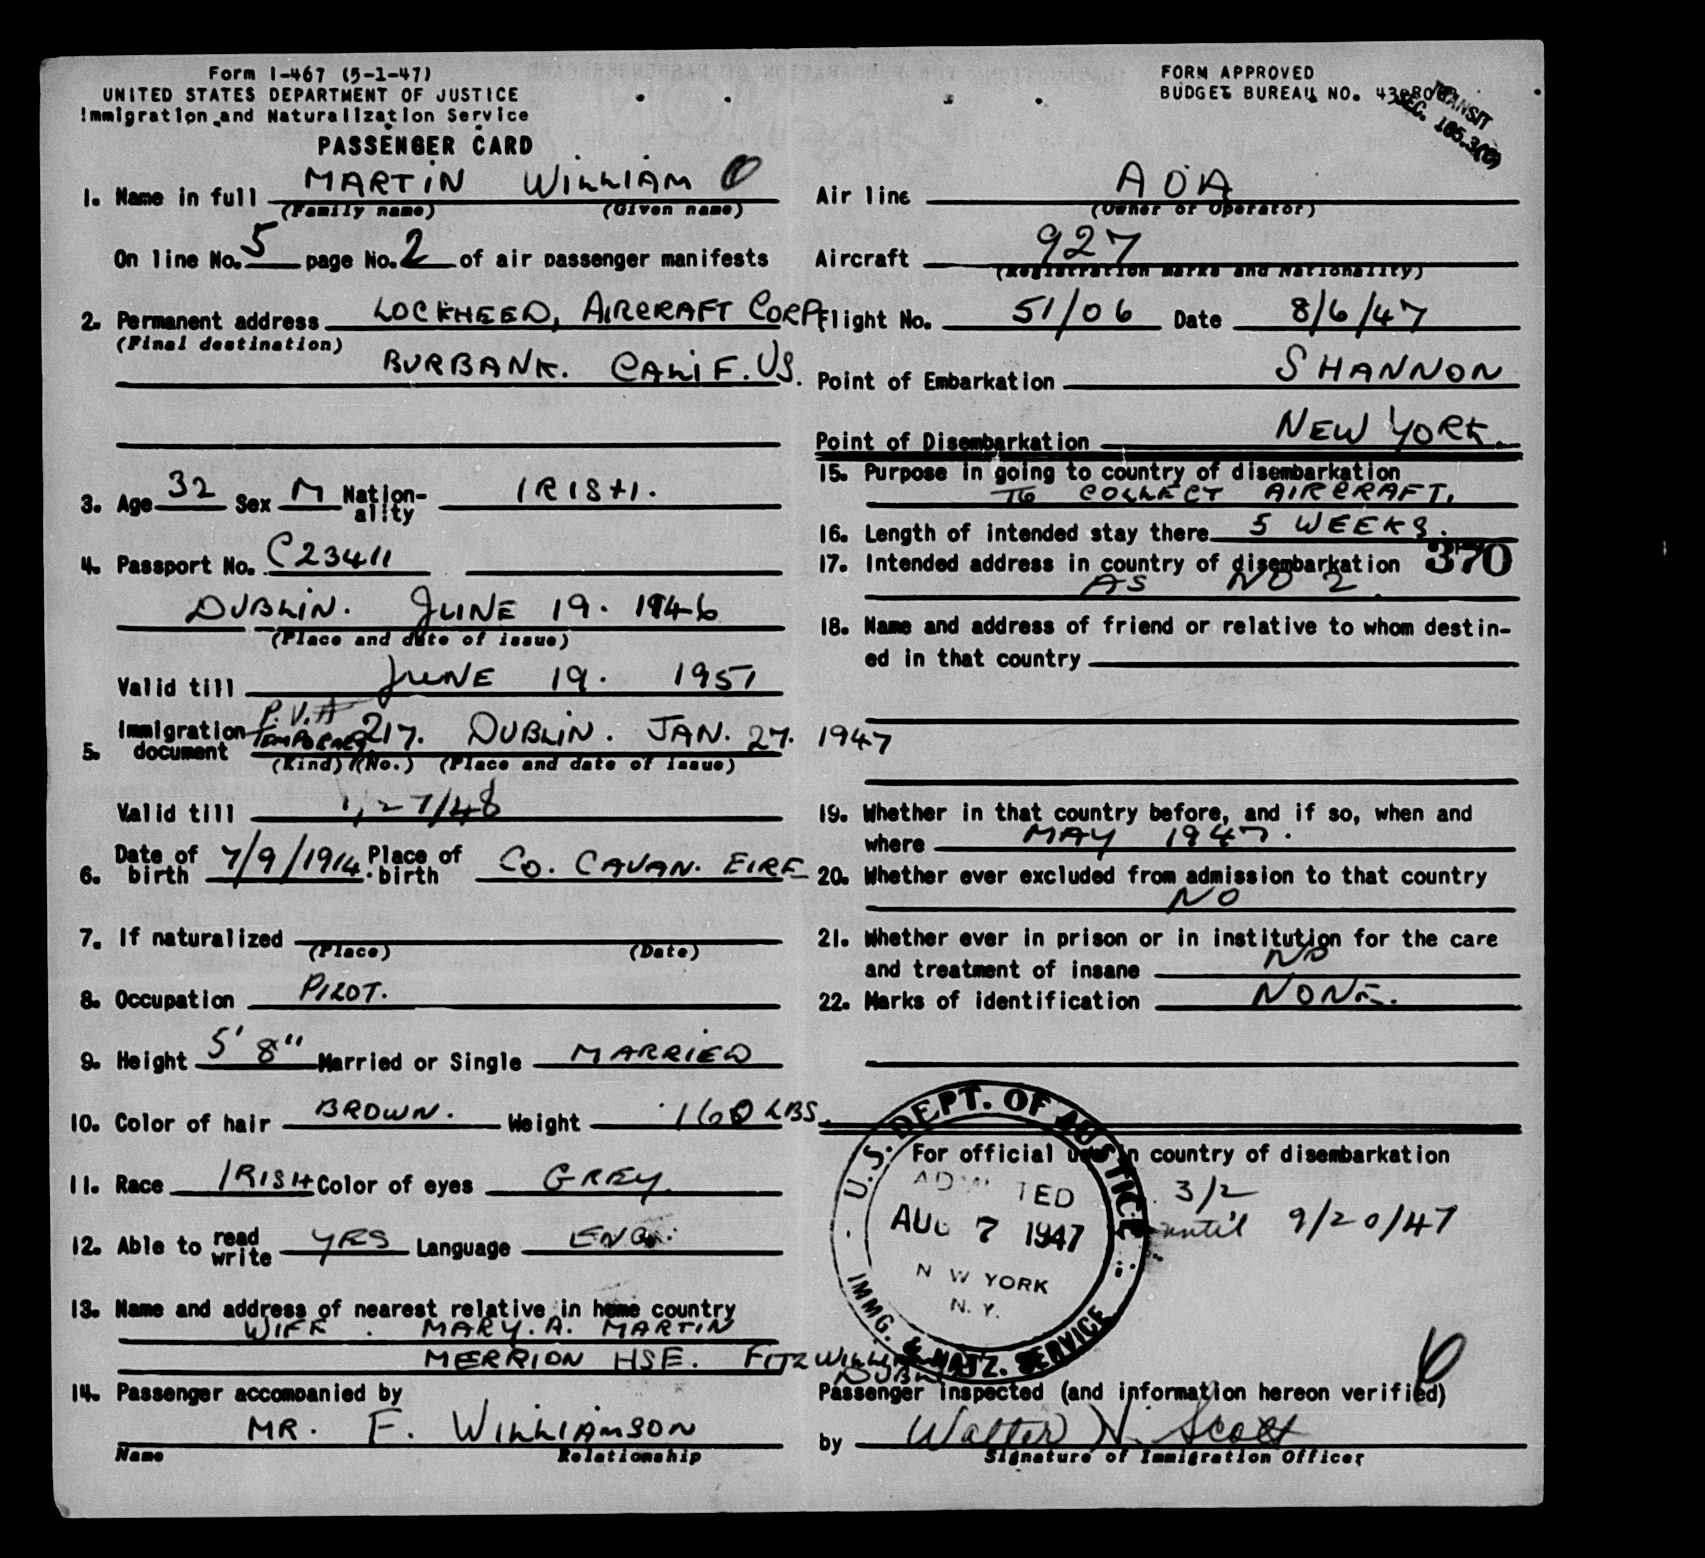 Form I-467 (5-1-47)
UNITED STATES DEPARTMENT OF JUSTICE
Immigration and Naturalization Service
PASSENGER CARD
1. Name in full MARTIN WILLIAM
(Family name) (Given name)
On line No. 5 page No. 2 of air passenger manifests
2. Permanent address LOCKHEED, AIRCRAFT CORP
(Final destination)
BURBANK. CALIF. US.
3. Age 32 Sex M Nation-ality IRISH.
4. Passport No. C23411
DUBLIN. JUNE 19. 1946
(Place and date of issue)
Valid till JUNE 19. 1951
5. Immigration document P.V. 217. DUBLIN. JAN. 27. 1947
(Kind) (No.) (Place and date of issue)
Valid till 1/27/48
6. Date of birth 7/9/1914. Place of birth CO. CAVAN. EIRE
7. If naturalized
(Place) (Date)
8. Occupation PILOT.
9. Height 5' 8" Married or Single MARRIED
10. Color of hair BROWN. Weight 160 LBS.
11. Race IRISH Color of eyes GREY.
12. Able to read write YES Language ENG.
13. Name and address of nearest relative in home country
WIFE. MARY. A. MARTIN
MERRION HSE. FITZWILLIAM
DUBLIN
14. Passenger accompanied by
MR. F. WILLIAMSON
Name Relationship
FORM APPROVED
BUDGET BUREAU NO.
TRANSIT
SEC. 165.3(B)
Air line AOA
(Owner or Operator)
Aircraft 927
(Registration marks and Nationality)
Flight No. 51/06 Date 8/6/47
Point of Embarkation SHANNON
Point of Disembarkation NEW YORK.
15. Purpose in going to country of disembarkation
TO COLLECT AIRCRAFT.
16. Length of intended stay there 5 WEEKS.
17. Intended address in country of disembarkation 370
AS NO 2.
18. Name and address of friend or relative to whom destin-
ed in that country
19. Whether in that country before, and if so, when and
where MAY 1947.
20. Whether ever excluded from admission to that country
NO
21. Whether ever in prison or in institution for the care
and treatment of insane NO
22. Marks of identification NONE.
For official use in country of disembarkation
U.S. DEPT. OF JUSTICE
ADMITTED
AUG 7 1947
NEW YORK
N.Y.
IMMG. & NATZ. SERVICE
3/2
until 9/20/47
Passenger inspected (and information hereon verified)
by Walter N. Scott
Signature of Immigration Officer